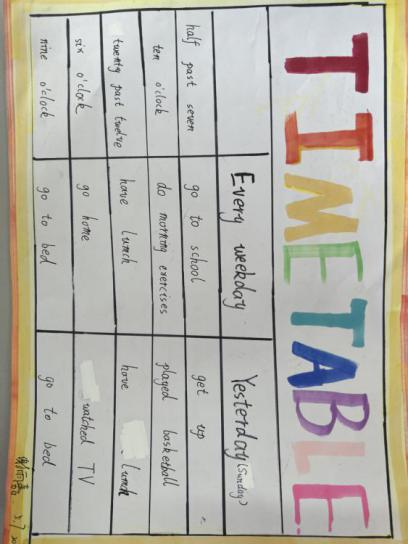 TIMETABLE
Every weekday Yesterday (Sunday)
half past seven go to school get up
ten o'clock do morning exercises played basketball
twenty past twelve have lunch have lunch
six o'clock go home watched TV
nine o'clock go to bed go to bed